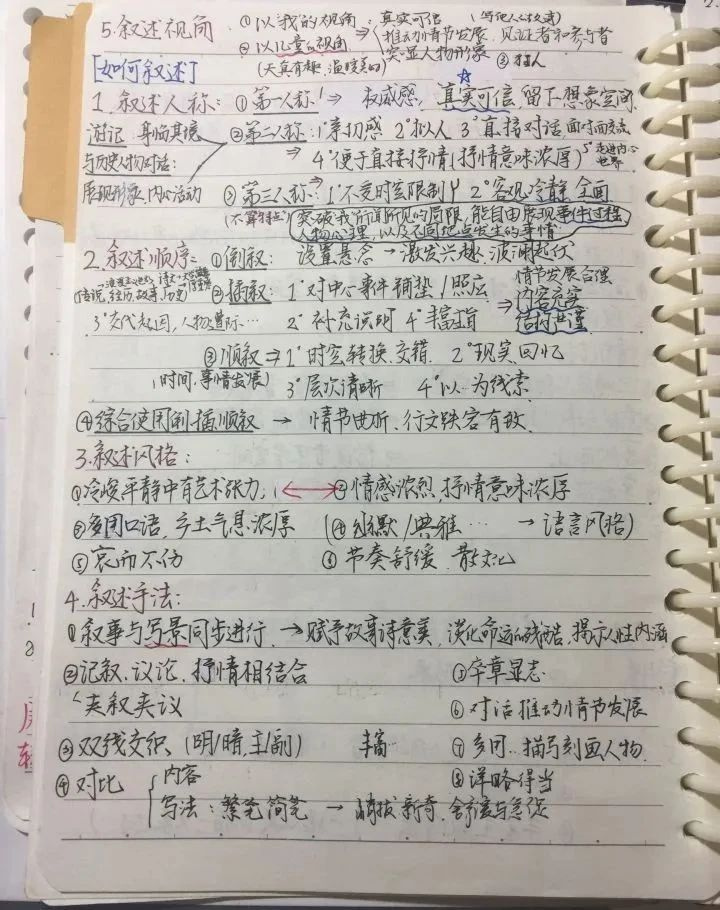 5.叙述视角 ①以我的视角:真实可信
②以儿童的视角 推动情节发展、见证者和参与者
(天真有趣,温暖美好) 突显人物形象 ③
[如何叙述]
1.叙述人称:①第一人称:⇒ 权威感,真实可信,留下想象空间
游记:身临其境 ②第二人称:1°亲切感 2°拟人 3°直接对话 面对面交流
与历史人物对话: ⇒ 4°便于直接抒情(抒情意味浓厚) 5°走进内心世界
展现形象、内心活动 ③第三人称:1°不受时空限制 2°客观冷静、全面
突破我所闻所见的局限,能自由展现事件过程
人物心理,以及不同地点发生的事情
2.叙述顺序:①倒叙: 设置悬念→激发兴趣、波澜起伏
传说,经历,故事,历史 ②插叙: 1°对中心事件铺垫/照应 ⇒ 情节发展合理
内容充实
3°交代起因,人物遭际… 2°补充说明 4°丰富 结构严谨
③顺叙⇒1°时空转换、交错 2°现实、回忆
(时间、事情发展) 3°层次清晰 4°以…为线索
④综合使用倒、插、顺叙 → 情节曲折、行文跌宕有致
3.叙述风格:
①冷峻平静中有艺术张力 ②情感浓烈、抒情意味浓厚
③多用口语,乡土气息浓厚 (④幽默/典雅… → 语言风格)
⑤哀而不伤 ⑥节奏舒缓、散文化
4.叙述手法:
①叙事与写景同步进行 →赋予故事诗意美,淡化命运的残酷,揭示人性内涵
②记叙、议论、抒情相结合 ⑤卒章显志
夹叙夹议 ⑥对话推动情节发展
③双线交织、(明/暗,主/副) 丰富 ⑦多用…描写刻画人物
④对比 内容 ⑧详略得当
写法:繁笔简笔 →